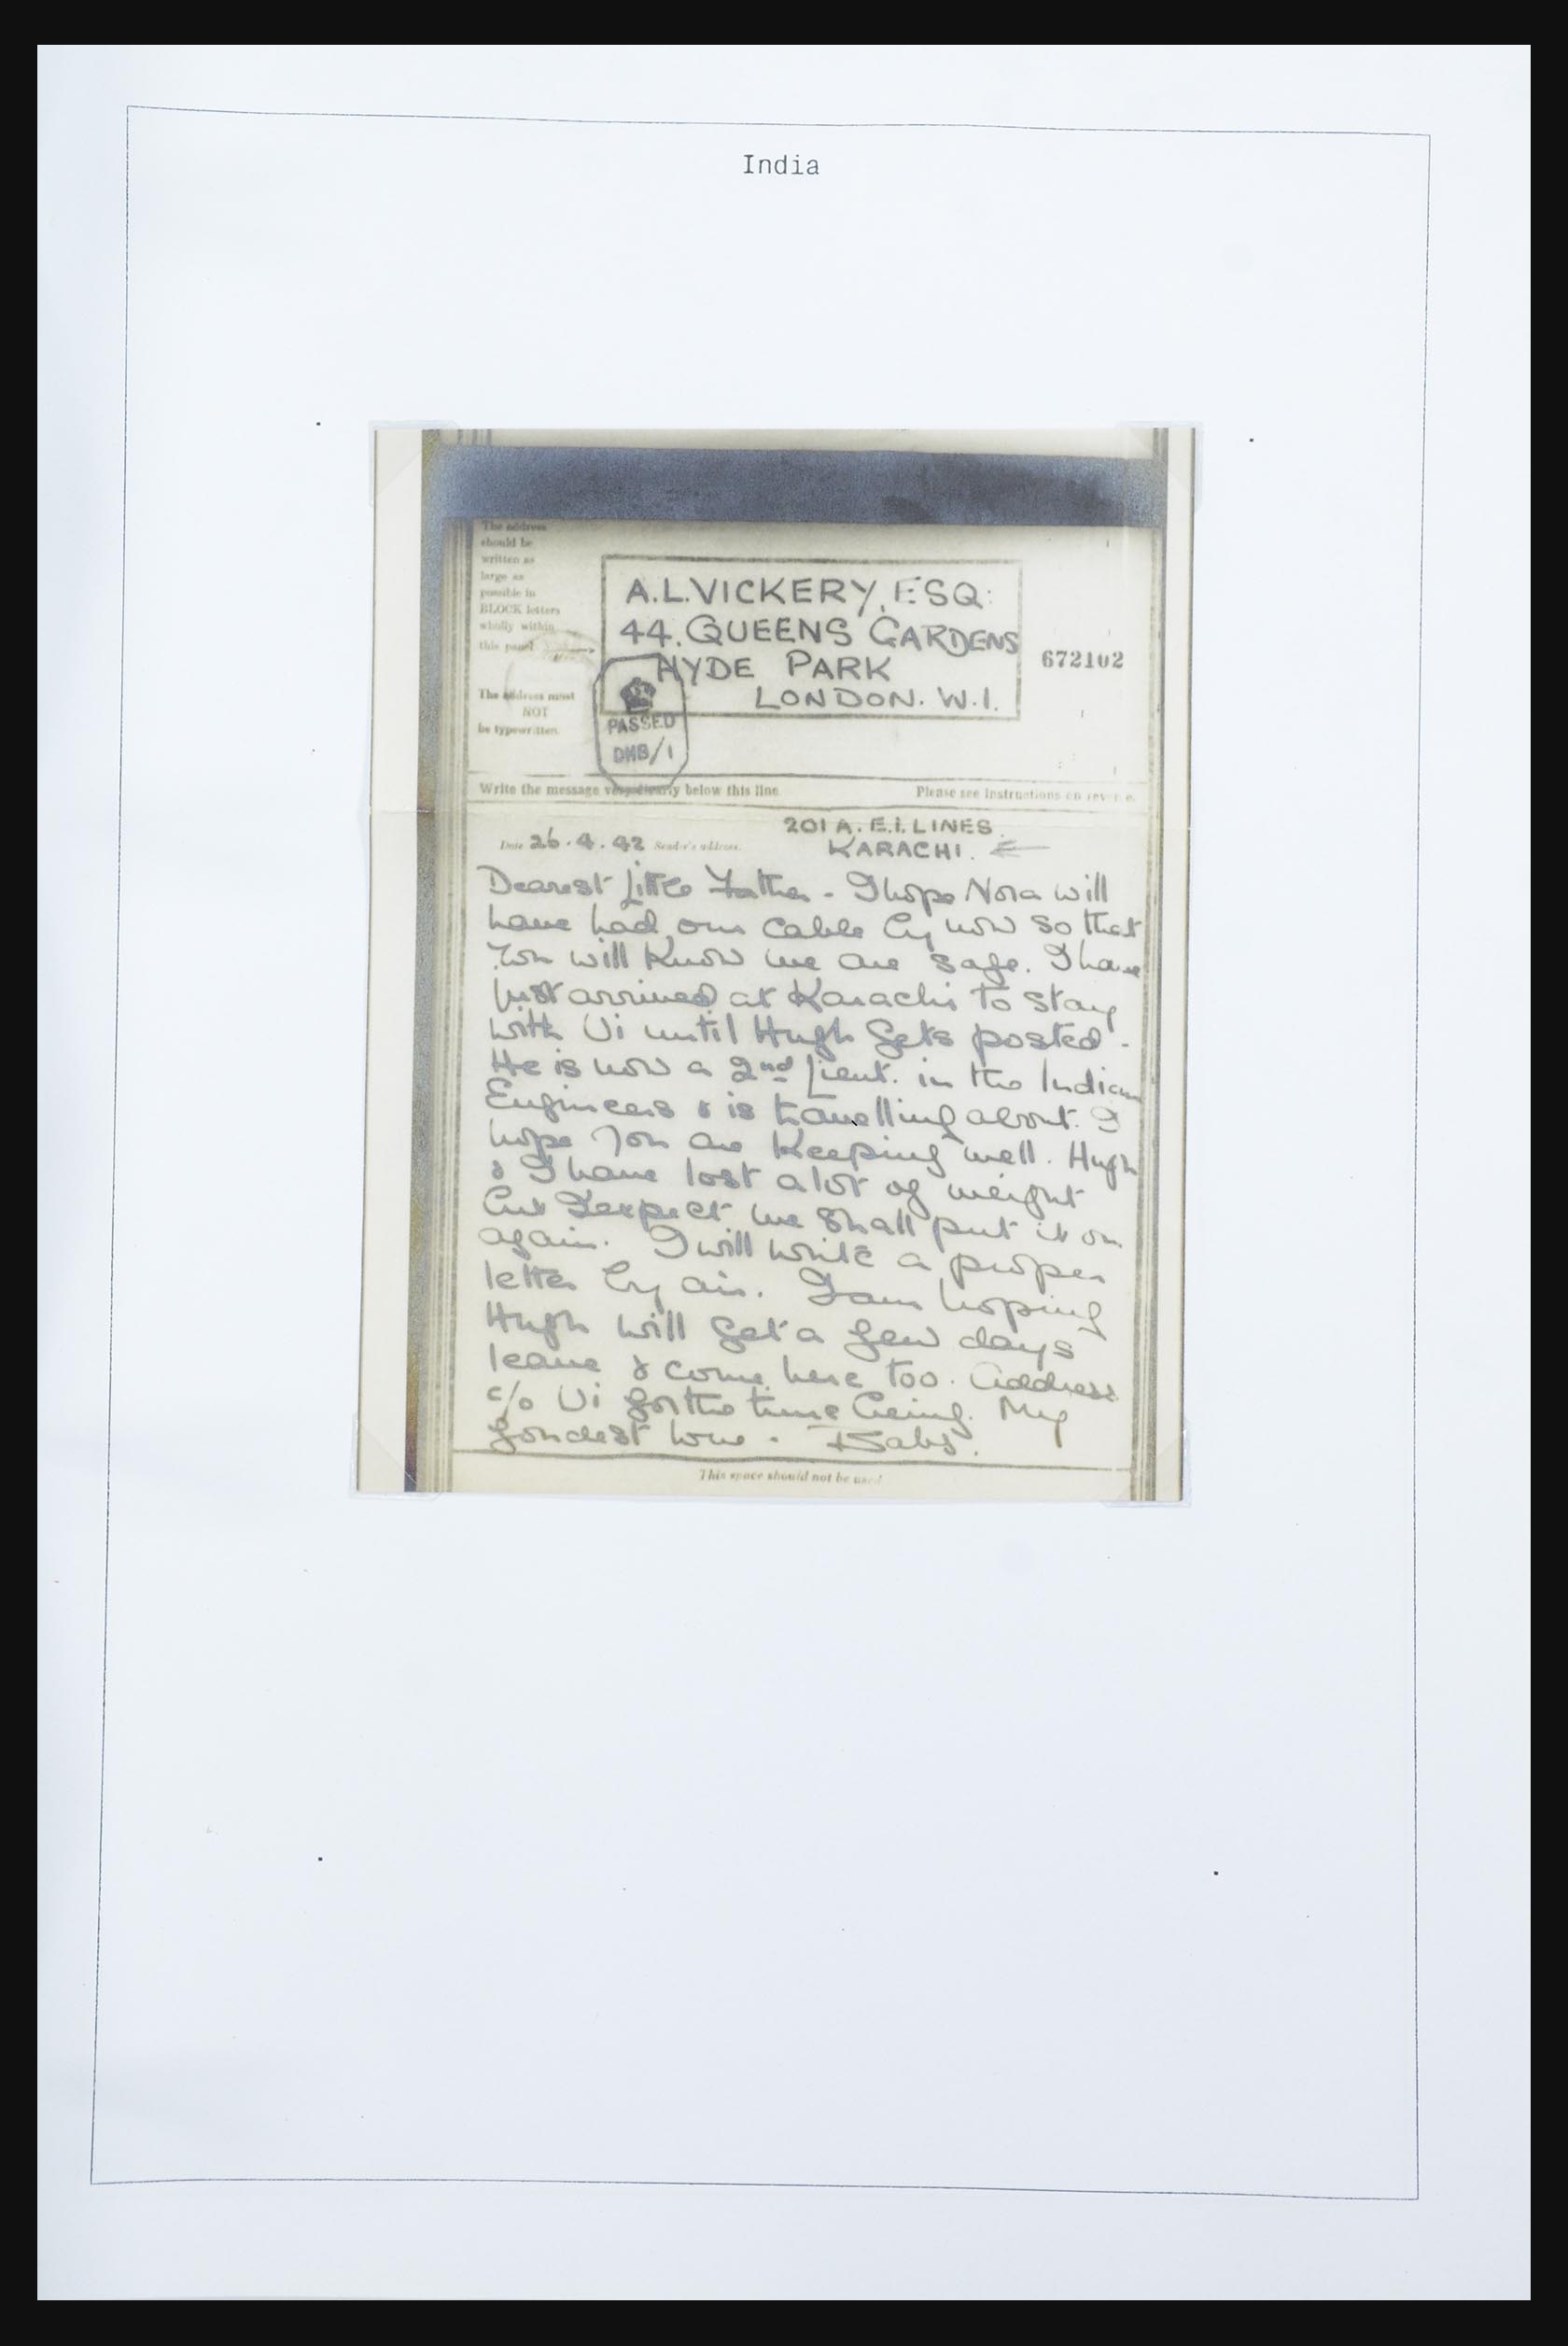 India
The address
should be
written as
large as
possible in
BLOCK letters
wholly within
this panel
The address must
NOT
be typewritten.
A.L.VICKERY, ESQ:
44. QUEENS GARDENS
HYDE PARK
LONDON. W.1.
672102
PASSED
DHB/1
Write the message very clearly below this line
Please see instructions on reverse.
201 A. E.I. LINES.
Date 26.4.42 Sender's address. KARACHI.
Dearest Little Father - I hope Nora will
have had our cable by now so that
you will know we are safe. I have
just arrived at Karachi to stay
with Vi until Hugh gets posted -
He is now a 2nd Lieut. in the Indian
Engineers & is travelling about. I
hope you are keeping well. Hugh
& I have lost a lot of weight
but I expect we shall put it on
again. I will write a proper
letter by air. I am hoping
Hugh will get a few days
leave & come here too. Address
c/o Vi for the time being. My
fondest love - Babs.
This space should not be used